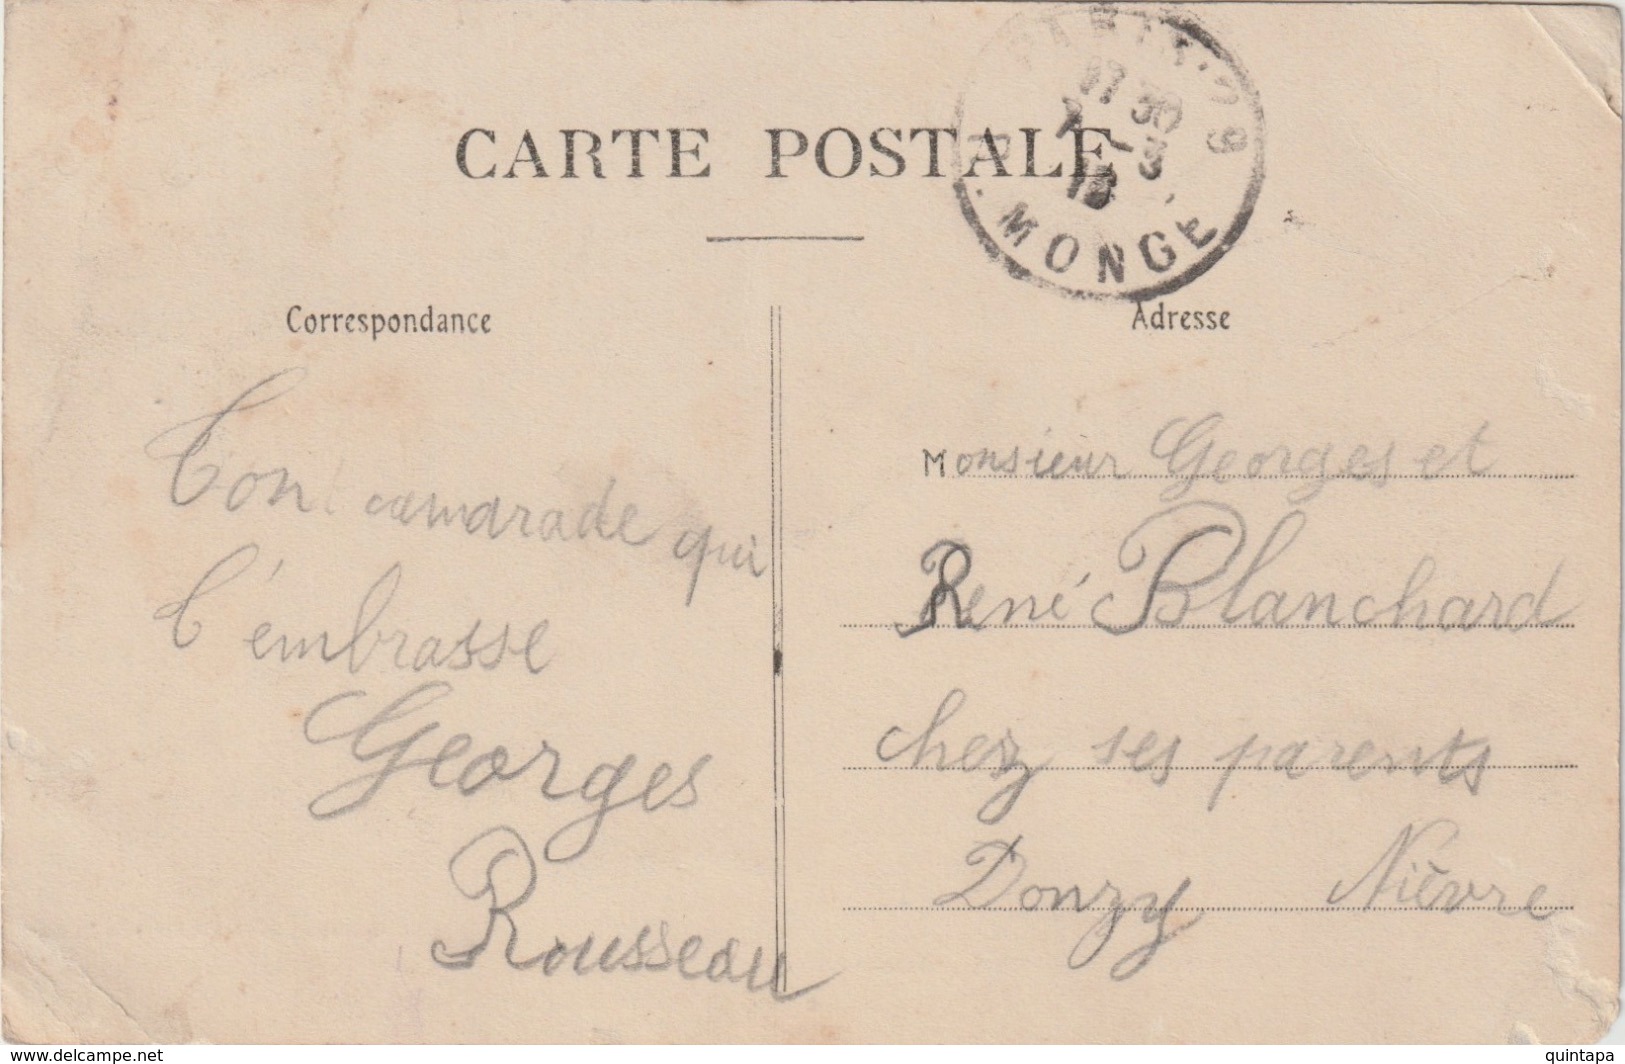 CARTE POSTALE
PARIS
17 30
MONGE
Correspondance
Ton camarade qui
t'émbrasse
Georges
Rousseau
Adresse
Monsieur Georges et
René Blanchard
chez ses parents
Donzy Nièvre
www.delcampe.net
quintapa